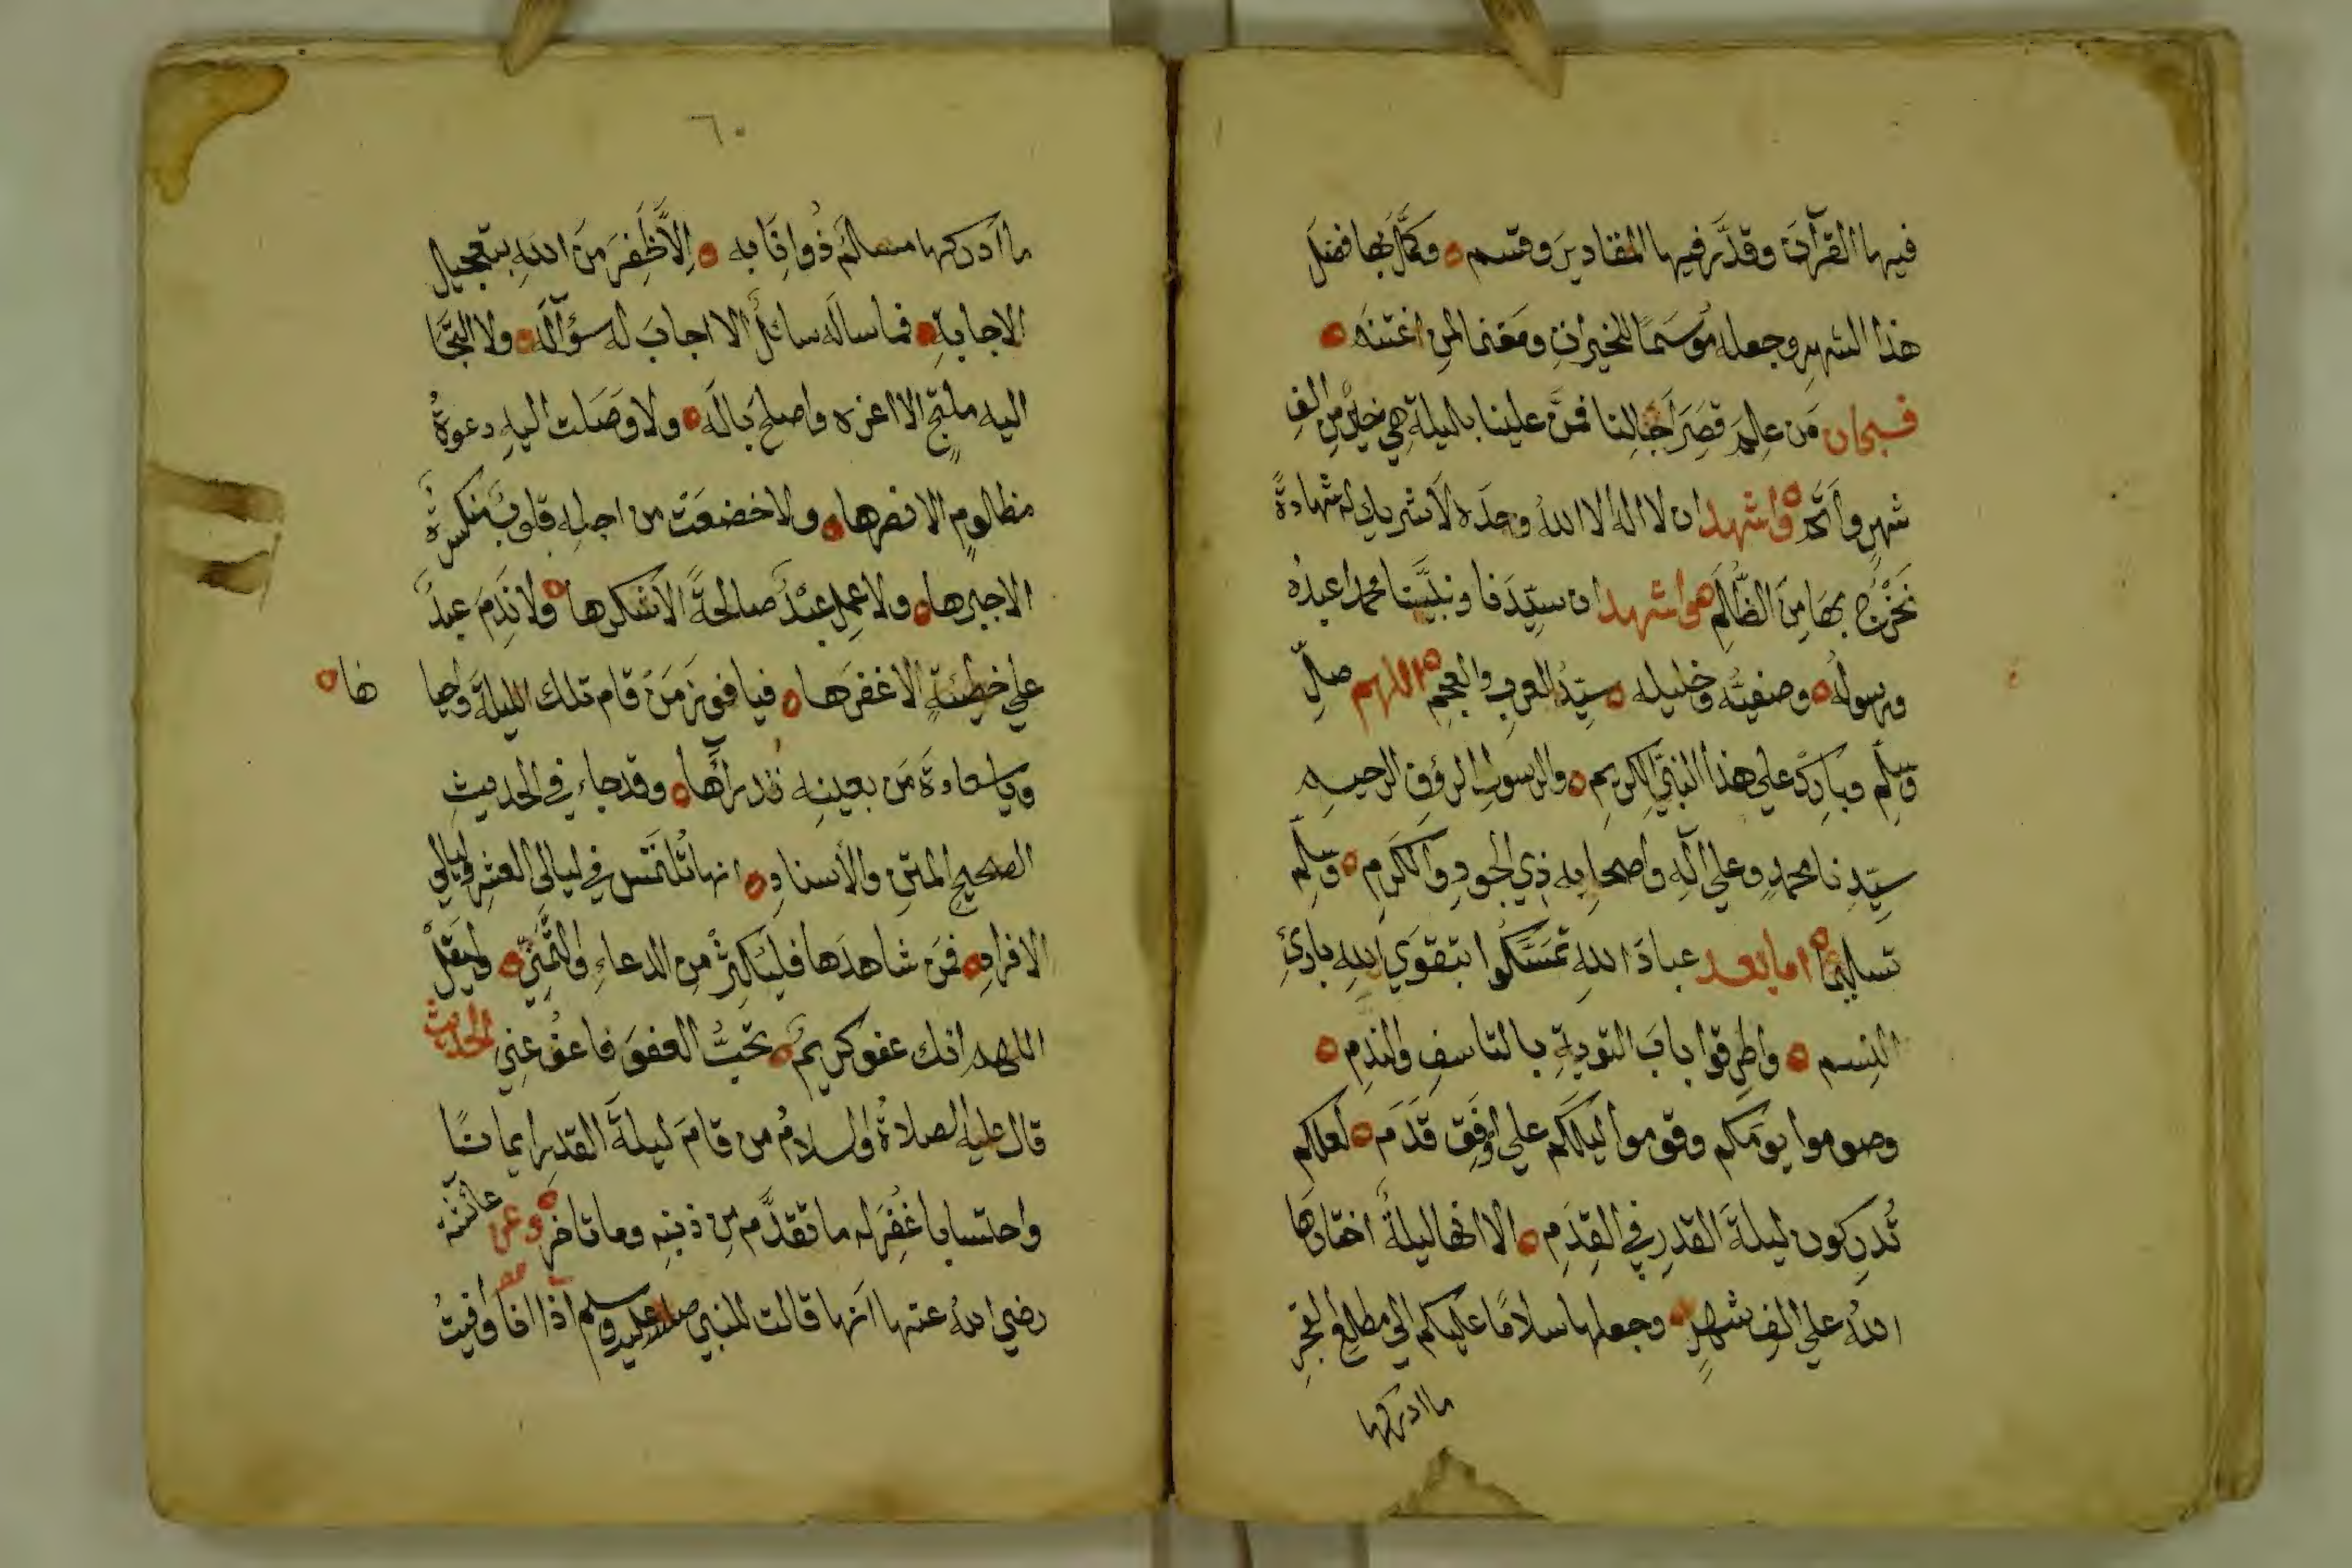 فيها القرآنَ وقدَّر فيها المقاديرَ وقسم ه وكمَّل بها فضلَ
هذا الشهرِ وجعله مُوسَمًا للخيراتِ ومغنما لمنِ اغتنمَه ه
فسبحان مَن علِمَ قصَرَ آجالِنا فمنَّ علينا بليلةٍ هي خيرٌ من الفِ
شهرٍ وأتمّ ه واشهد ان لا اله الا اللهُ وحدَه لا شريك له شهادةً
نَخْرُجُ بها مِنَ الظُلَمِ ه واشهد ان سيّدَنا ونبيَّنا محمدا عبدُه
ورسولُه ه وصفيُّه وخليله ه سيِّدُ العربِ والعجمِ ه اللهم صلِّ
وسلِّم وبارِكْ على هذا النبيِّ الكريمِ ه والرسولِ الرؤفِ الرحيم
سيِّدِنا محمدٍ وعلى آلِه واصحابِه ذِي الجودِ والكَرَمِ ه وسلِّم
تسليمًا ه اما بعد عبادَ اللهِ تمسَّكوا بتقوَى اللهِ بارئِ
النِسم ه واطرقوا بابَ التوبةِ بالتاسفِ والندِم ه
وصوموا يومَكم وقوموا ليلَكم على اوْفَقِ قَدَمَ ه لعلكم
تُدرِكون ليلةَ القدرِ في القِدَمِ ه الا انها ليلةٌ اختارها
اللهُ على الفِ شهرٍ ه وجعلها سلامًا عليكم الى مطلعِ الفجرِ
ما ادركها
٦٠
ما ادركها مسالمٌ ذُو انابه ه اِلاَّ ظَفِرَ مِنَ اللهِ بتعجيل
الاجابةِ ه فما سالَه سائلٌ الا اجابَ له سؤآلَه ه ولا التجَا
اليه ملتجٍ الا اعزه واصلح بَالَه ه ولا وَصَلت اليهِ دعوةُ
مظلومٍ الا نصرها ه ولا خضعَتْ من اجله قلوبٌ منكسرةٌ
الا جبرها ه ولا عمِل عبْدٌ صالحةً الا شكرها ه ولا نَدِمَ عبدٌ
على خطيئةٍ الا غفرَها ه فيا فوزَ مَن قام تلك الليلةَ واحيا ها ه
ويا سعادةَ مَن بعينِه قد رآها ه وقد جاء في الحديثِ
الصحيحِ المتنِ والأسنادِ ه انها تُلتَمَس في ليالي العشرِ وليالي
الافرادِ ه فمَن شاهدَها فليُكثِرْ مِن الدعاءِ والتمَنّي ه وليقلْ
اللهم انك عفو كريمٌ ه تحبُّ العفوَ فاعفُ عنِي الحديث
قال عليه الصلاةُ والسلامُ من قامَ ليلةَ القدرِ ايمانًا
واحتسابا غُفِرَ له ما تقدَّم مِن ذنبِه وما تاخر ه وعن عائشة
رضي اللهُ عنها انها قالت للنبي صلى الله عليه وسلم اذا انا وافيتُ